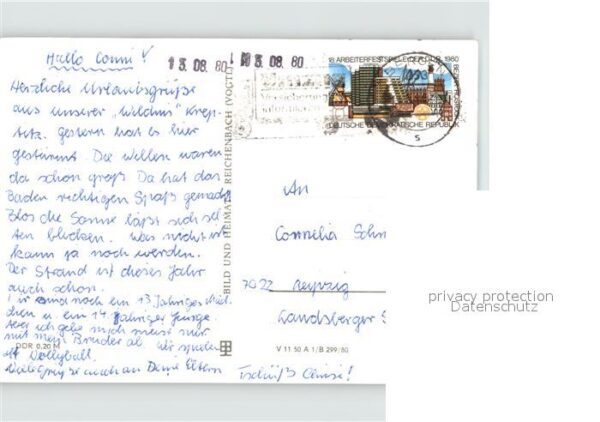 Hallo Conni!
Herzliche Urlaubsgrüße
aus unserer "Wildnis" Krep-
titz. gestern hat es hier
gestürmt. Die Wellen waren
da schon groß. Da hat das
Baden richtigen Spaß gemacht
Blos die Sonne läßt sich sel-
ten blicken. Was nicht ist
kann ja noch werden.
Der Strand ist dieses Jahr
auch schön.
sind noch ein 13 Jähriges Mäd-
chen u. ein 14 jähriger Junge.
Aber ich gebe mich meist nur
mit mein Bruder ab. Wir spielen
oft Volleyball.
Viele grüße auch an Deine Eltern
Tschüß
DDR 0,20 M
BILD UND HEIMAT REICHENBACH (VOGTL)
V 11 50 A 1/B 299/80
13.08.80
13.08.80
18. ARBEITERFESTSPIELE DER DDR 1980
DEUTSCHE DEMOKRATISCHE REPUBLIK
An
Cornelia Schm
7022 Leipzig
Landsberger S
privacy protection
Datenschutz